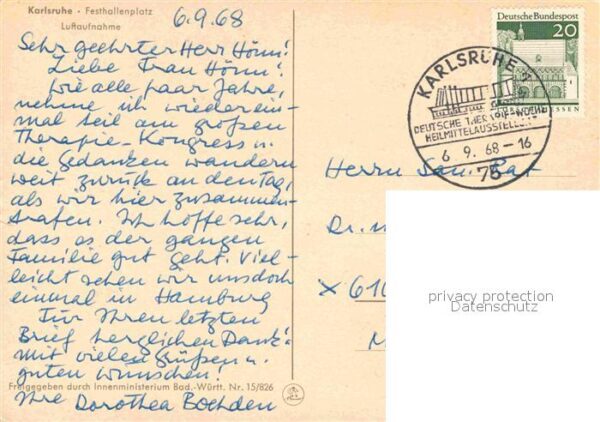 Karlsruhe - Festhallenplatz
Luftaufnahme
6.9.68
Sehr geehrter Herr Hömm!
Liebe Frau Hömm!
Wie alle paar Jahre,
nehme ich wieder ein-
mal teil am großen
Therapie-Kongress u.
die Gedanken wandern
weit zurück an den Tag,
als wir hier zusammen-
trafen. Ich hoffe sehr,
dass es der ganzen
Familie gut geht. Viel-
leicht sehen wir uns doch
einmal in Hamburg
Für Ihren letzten
Brief herzlichen Dank!
Mit vielen Grüßen u.
guten Wünschen!
Freigegeben durch Innenministerium Bad.-Württ. Nr. 15/826
Ihre Dorothea Bochden
Deutsche Bundespost
20
HESSEN
KARLSRUHE
DEUTSCHE THERAPIE-WOCHE
HEILMITTELAUSSTELLUNG
6. 9. 68 - 16
75
Herrn San. Rat
Dr. m
X 610
M
privacy protection
Datenschutz